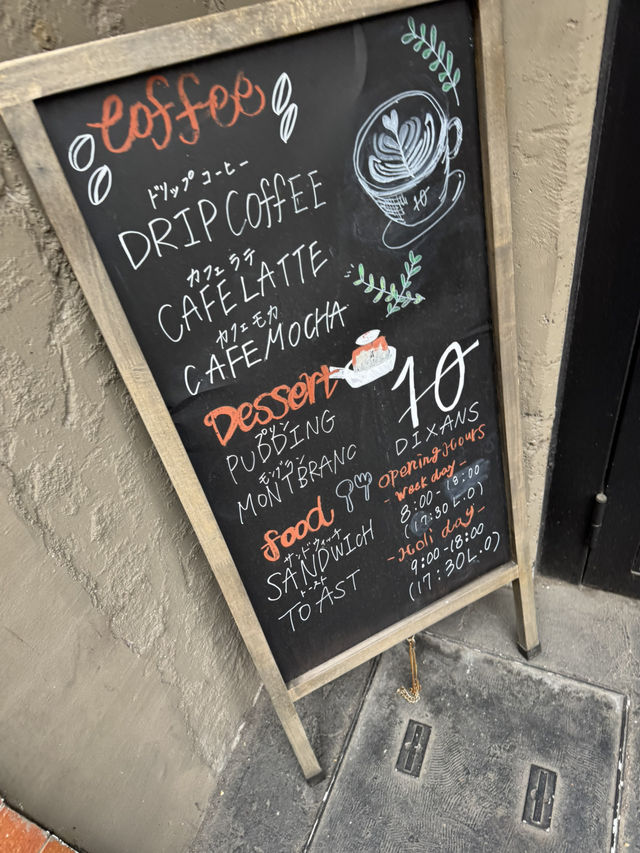 Coffee
ドリップコーヒー
DRIP COFFEE
カフェラテ
CAFE LATTE
カフェモカ
CAFE MOCHA
Dessert
プリン
PUDDING
モンブラン
MONTBRANC
food
サンドウィッチ
SANDWICH
トースト
TOAST
10
10
DIXANS
Opening Hours
- Week day -
8:00-18:00
(17:30 L.O)
- Holi day -
9:00-18:00
(17:30 L.O)